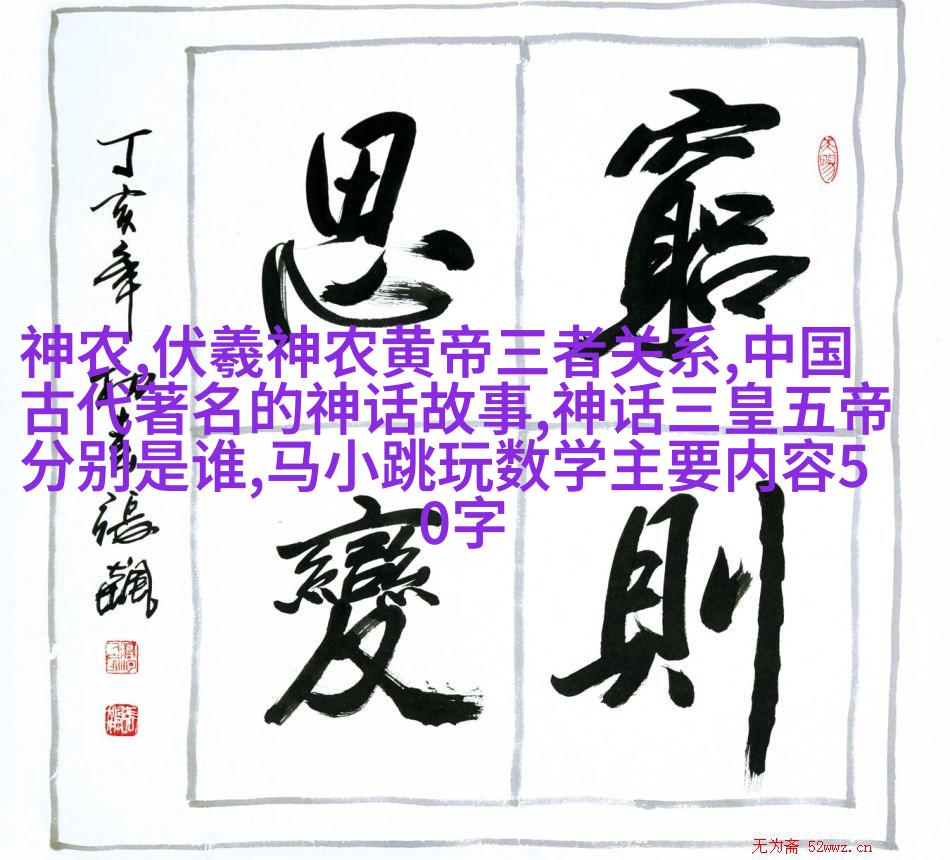 窮則
思變
丁亥年
張飆
神农,伏羲神农黄帝三者关系,中国
古代著名的神话故事,神话三皇五帝
分别是谁,马小跳玩数学主要内容5
0字
无为斋 52wwz.cn